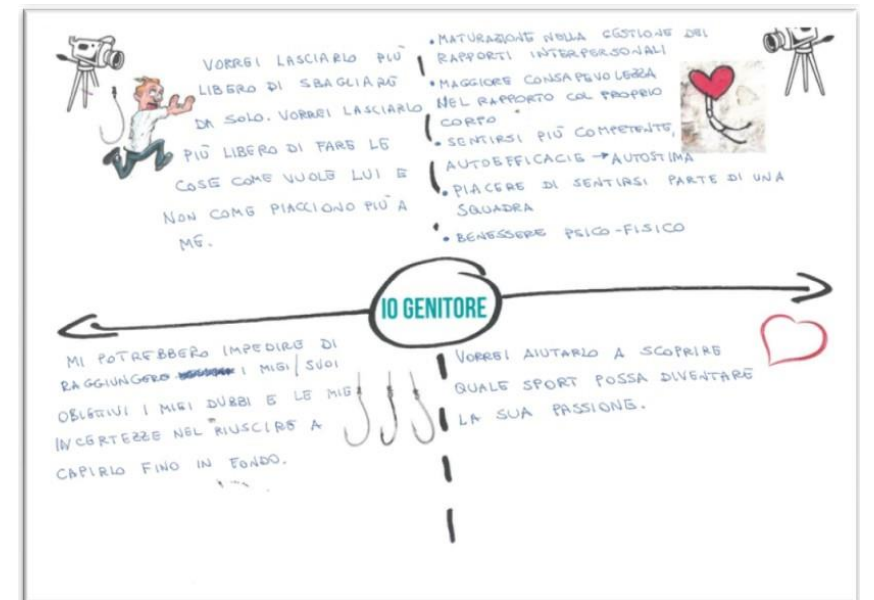 VORREI LASCIARLO PIÙ
LIBERO DI SBAGLIARE
DA SOLO. VORREI LASCIARLO
PIÙ LIBERO DI FARE LE
COSE COME VUOLE LUI E
NON COME PIACCIONO PIÙ A
ME.
• MATURAZIONE NELLA GESTIONE DEI
RAPPORTI INTERPERSONALI
• MAGGIORE CONSAPEVOLEZZA
NEL RAPPORTO COL PROPRIO
CORPO
• SENTIRSI PIÙ COMPETENTE,
AUTOEFFICACIE → AUTOSTIMA
• PIACERE DI SENTIRSI PARTE DI UNA
SQUADRA
• BENESSERE PSICO-FISICO
IO GENITORE
MI POTREBBERO IMPEDIRE DI
RAGGIUNGERE I MIEI/SUOI
OBIETTIVI I MIEI DUBBI E LE MIE
INCERTEZZE NEL RIUSCIRE A
CAPIRLO FINO IN FONDO.
VORREI AIUTARLO A SCOPRIRE
QUALE SPORT POSSA DIVENTARE
LA SUA PASSIONE.